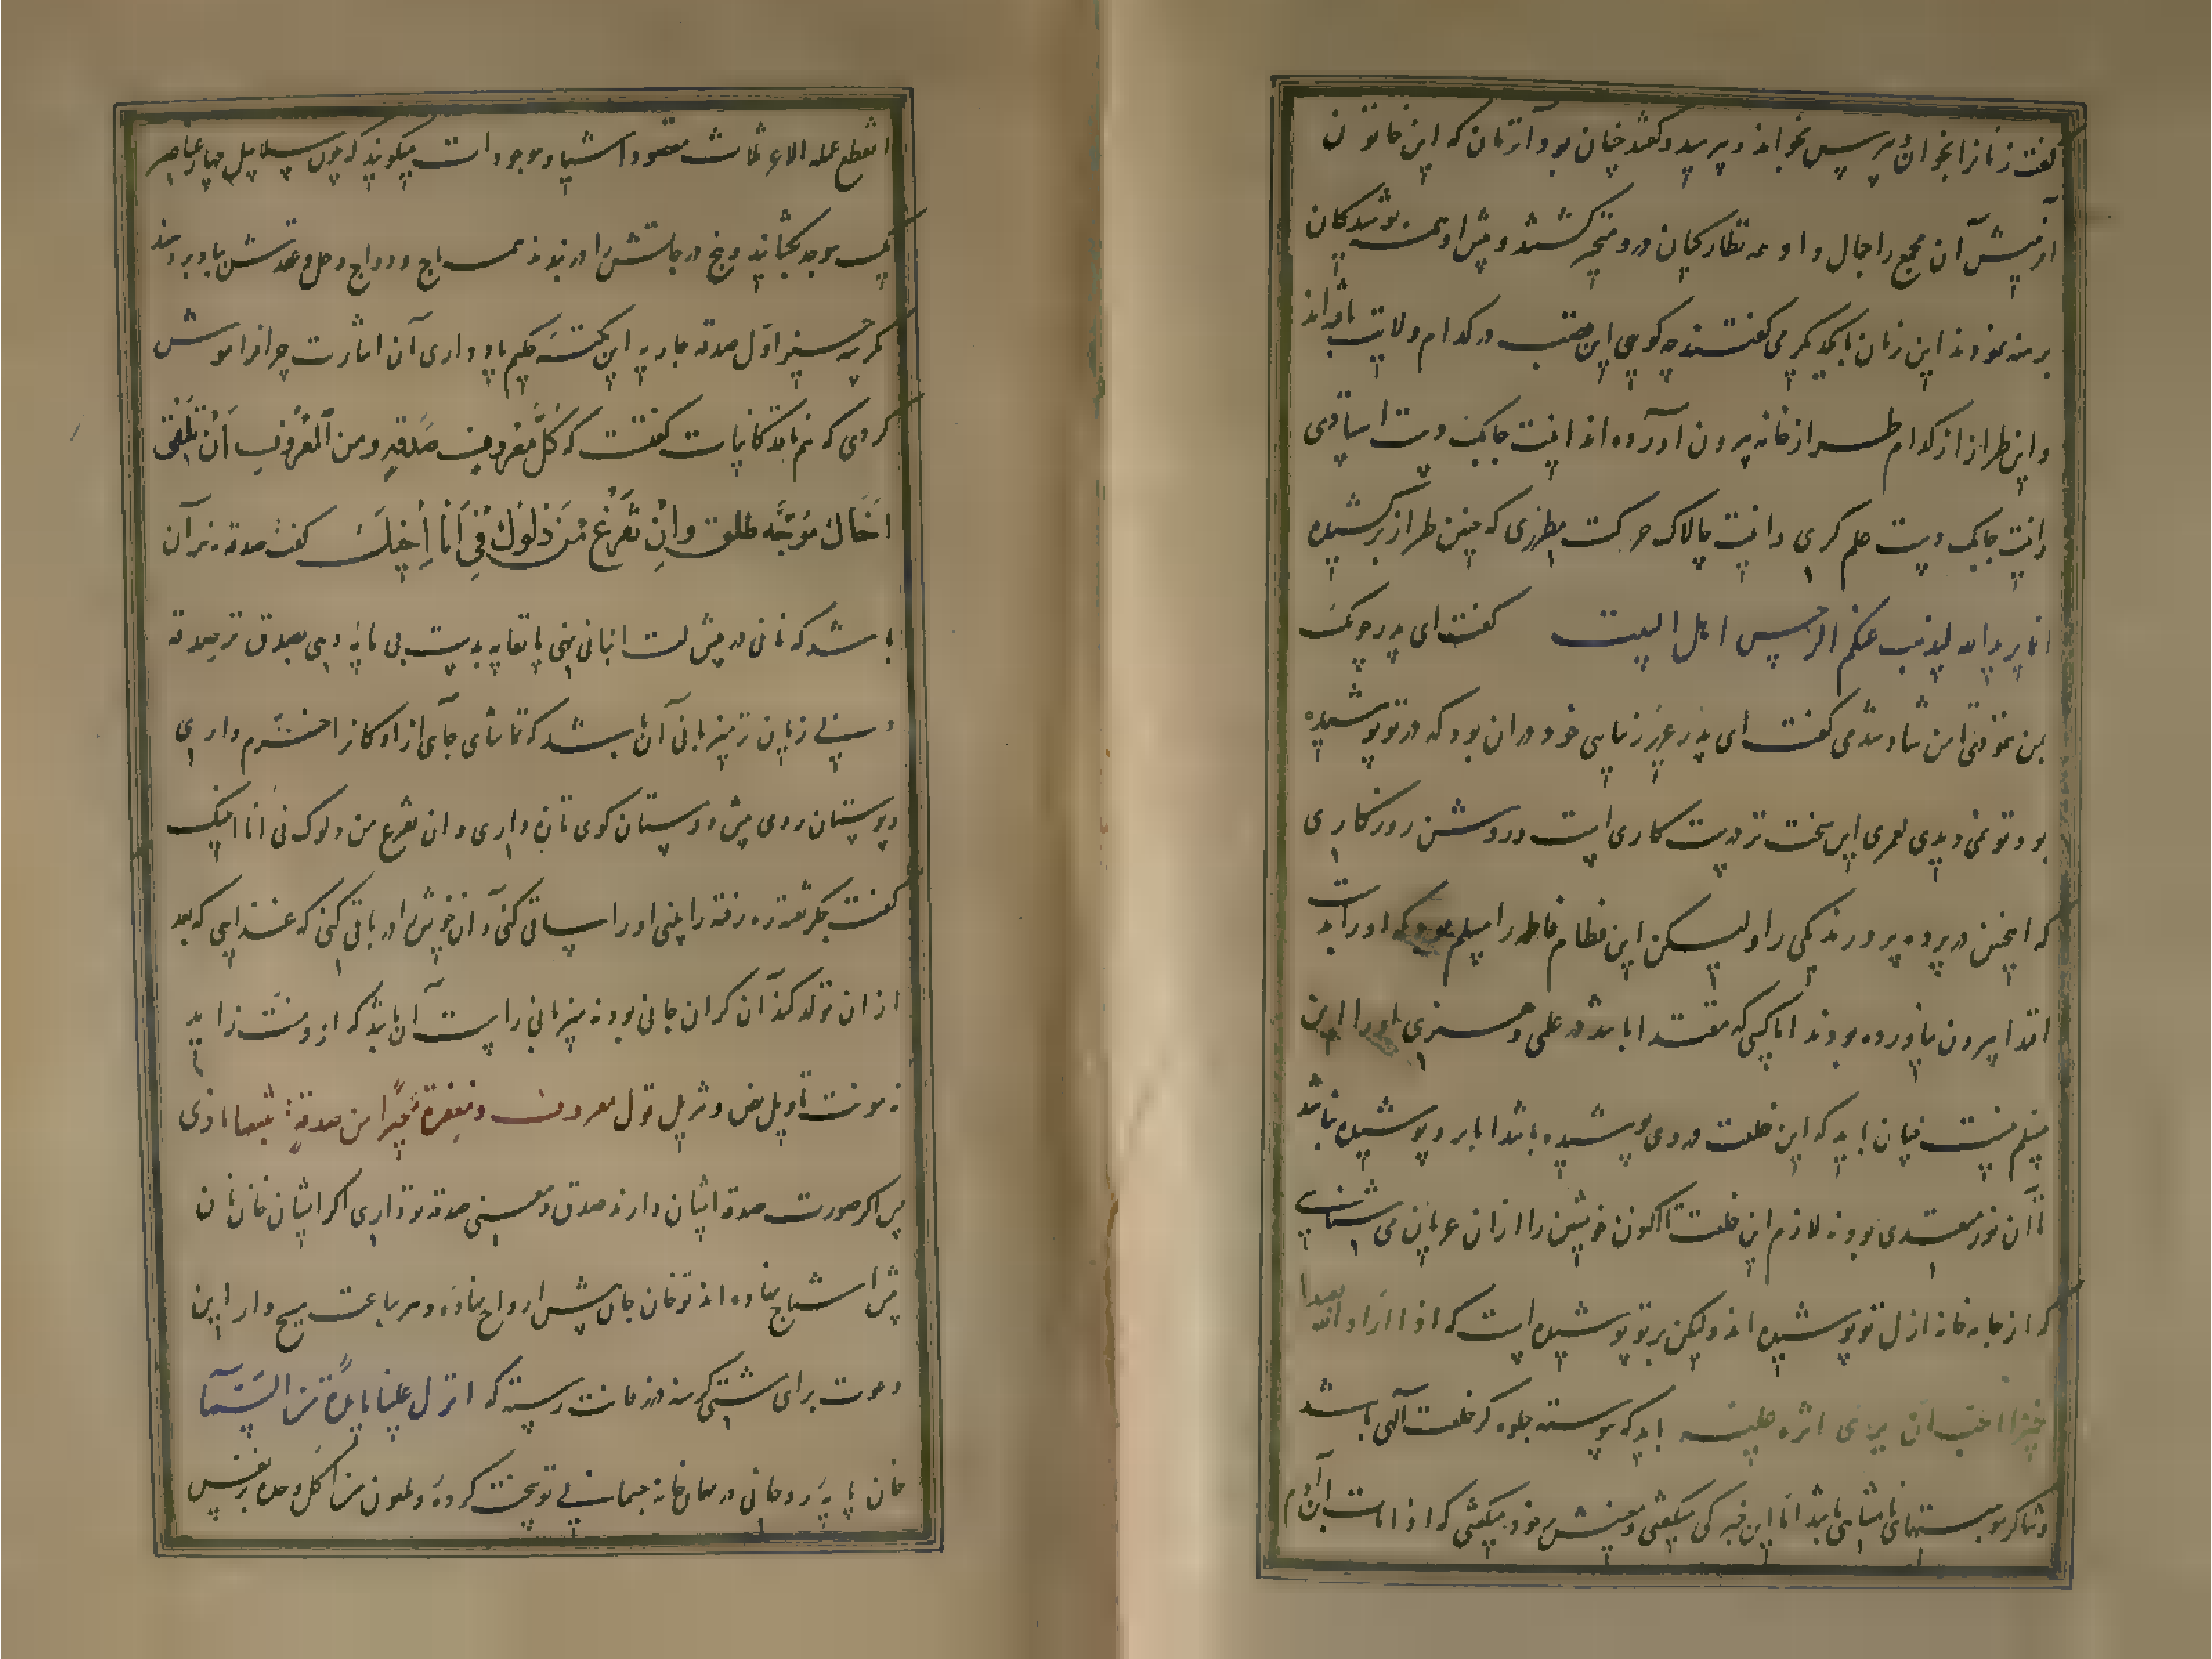 گفت زنانرا بخوان و بپرس بخواند و پرسید گفتند چنان بود آن زمان که این خاتون
از پیش آن مجمع را جمال داد همه نظارکیان در و متحیر کشتند و پیش او همه پوشیدکان
برهنه نمودند این زنان با یکدیکر می گفتند چه کوهی این قصب در کدام ولایت بافته اند
و این طراز از کدام طراز خانه بیرون آورده اند اینت چابک دست استادی
و اینت چابک دست علم کری و اینت چالاک حرکت مطرزی که چنین طراز برکشیده
انما یرید الله لیذهب عنکم الرجس اهل البیت گفت ای پدر چونک
بمن ننمودی تا من شاد شدمی گفت ای پدر عزیز زیبایی خود در ان بود که در تو پوشیده
بود و تو نمی دیدی لعمری این سخت تر دست کاری است و روشن روزکاری
که اینچنین در پرده پرورند یکی را و لیکن این فطام فاطمه را مسلم بود که او را از بهر
اقتدا بیرون نیاورده بودند اما کسی که مقتدا باشد در علمی و هنری او را این
مسلم نیست چنان باید که این خلعت در وی پوشیده باشد اما بر و پوشیده نباشد
تا آن نور مقتدی بود نه لازم این خلعت تا اکنون خویشتن را از ان عریان می شناسی
که از جامه خانه ازل تو پوشیده اند ولیکن بر تو پوشیده است که اذا اراد الله بعبد
خیرا احب ان یری اثره علیه باید که پوسته جلوه کر خلعت آلهی باشد
و شاکر موهبتهای نامتناهی باشد اما این خبر کی میگفتی و معنیش بود میگفتی که اذا مات ابن آدم
انقطع عمله الا عن ثلاث مقصود اشیا و موجودات میگویند که چون سلاسل چهار عناصر
یک موجد بجنبانید و پنج درجاتش را در بدوند همه مساج و ازدواج و حل و عقدش بباد بر دهند
کرچه حسنه اول صدقه جاریه این نکته حکیم یاد داری آن اشارت چرا فراموش
کردی که هم ناقد کاینات گفت که کل معروف صدقة و من المعروف ان تلقی
اخاک بوجه طلق و ان تفرغ من دلوک فی انا اخیک گفت صدقه نه آن
باشد که نانی در پیش لت انبانی نهی یا نقایه بدست بی مایه دهی بصدق تر صدقه
و سنی زبان تر میزبانی آن باشد که تماشای جای آزادکانرا خرم داری
و بوستان روی پیش دوستان کوی تازه داری و ان تفرغ من دلوک فی انا اخیک
گفت جکر تشنه ره رفته را بینی او را سیاقی کنی و آن خویش را در باقی کنی که غذایی که بعد
از ان تولد کند آن کران جانی بود نه میزبانی راست آن باشد که از و منت زاید
نه مونت تاویل نص و تنزیل قول معروف و مغفرة خیر من صدقة یتبعها اذی
پس اکر صورت صدقه ایشان دارند صدق و معنی صدقه تو داری اکر ایشان خان نان
پیش اشباح نهاده اند تو خان جان پیش ارواح نهاده و هر ساعت مسیح وار این
دعوت برای مشتی کرسنه در زمانت رسته که انزل علینا مایدة من السما
خان پایه روحانی در مهمان خانه جسمانی تو پخت کرده و ملعون من اکل وحده بر نفس